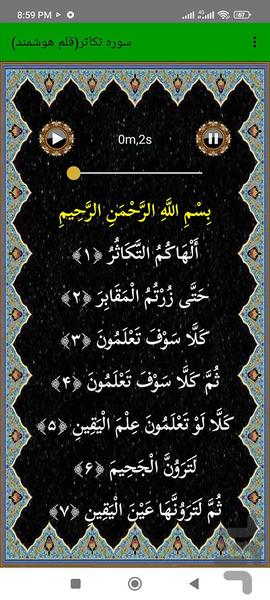 8:59 PM
67
سوره تکاثر(قلم هوشمند)
0m,2s
بِسْمِ اللَّهِ الرَّحْمَنِ الرَّحِيمِ
أَلْهَاكُمُ التَّكَاثُرُ ﴿۱﴾
حَتَّى زُرْتُمُ الْمَقَابِرَ ﴿۲﴾
كَلَّا سَوْفَ تَعْلَمُونَ ﴿۳﴾
ثُمَّ كَلَّا سَوْفَ تَعْلَمُونَ ﴿۴﴾
كَلَّا لَوْ تَعْلَمُونَ عِلْمَ الْيَقِينِ ﴿۵﴾
لَتَرَوُنَّ الْجَحِيمَ ﴿۶﴾
ثُمَّ لَتَرَوُنَّهَا عَيْنَ الْيَقِينِ ﴿۷﴾